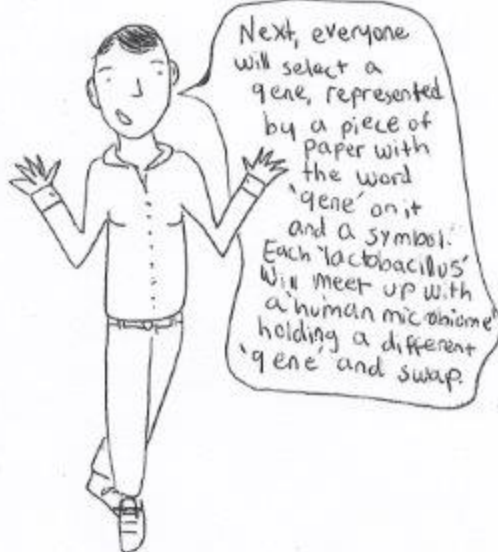 Next, everyone
will select a
gene, represented
by a piece of
paper with
the word
'gene' on it
and a symbol.
Each 'lactobacillus'
will meet up with
a 'human microbiome'
holding a different
'gene' and swap.